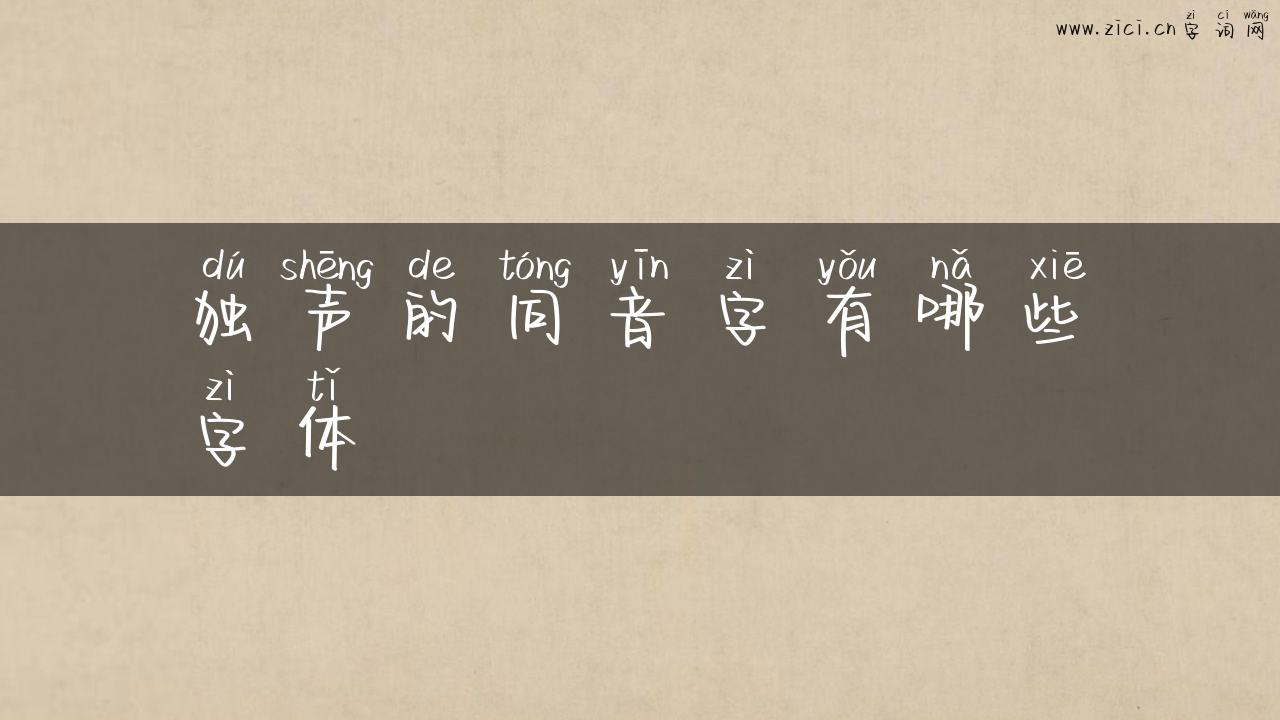 zì cí wǎng
www.zici.cn 字词网
dú shēng de tóng yīn zì yǒu nǎ xiē
独声的同音字有哪些
zì tǐ
字体